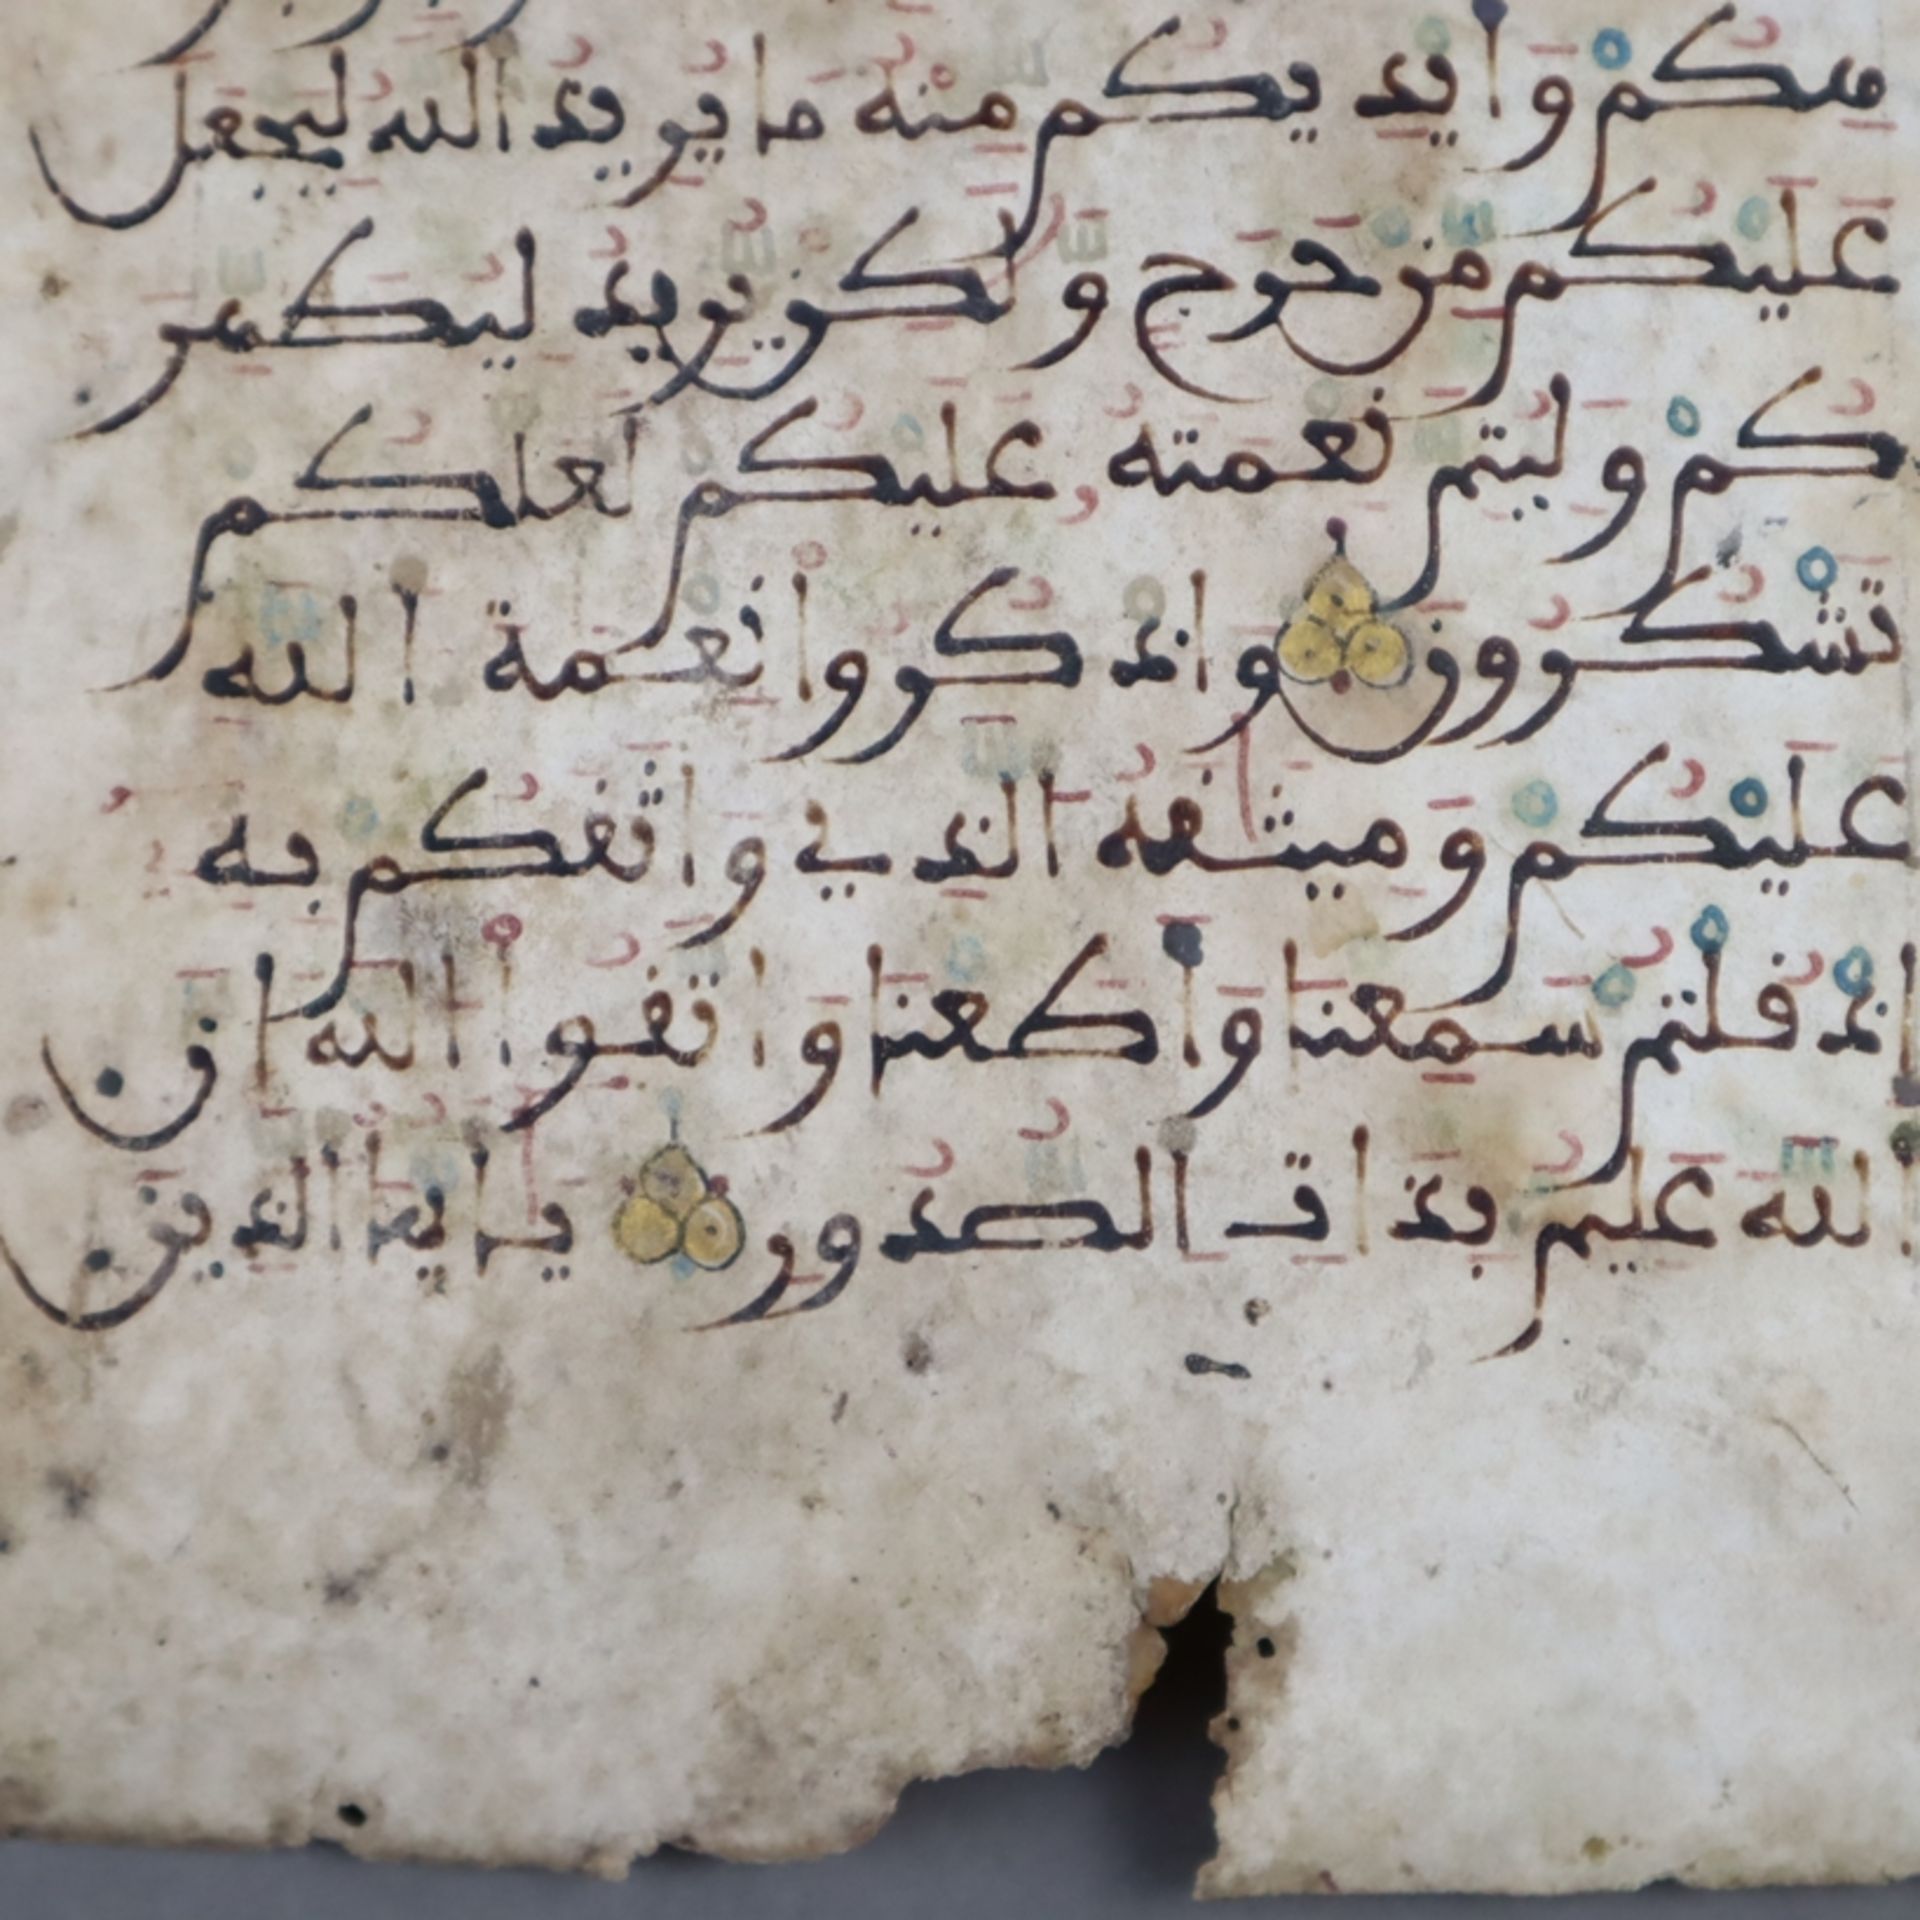 هكم وأيديكم منه ما يريد الله ليجعل
عليكم من حرج ولكن يريد ليطهر
كم وليتم نعمته عليكم لعلكم
تشكرون واذكروا نعمة الله
عليكم وميثقه الذي واثقكم به
إذ قلتم سمعنا وأطعنا واتقوا الله إن
الله عليم بذات الصدور يايها الذين